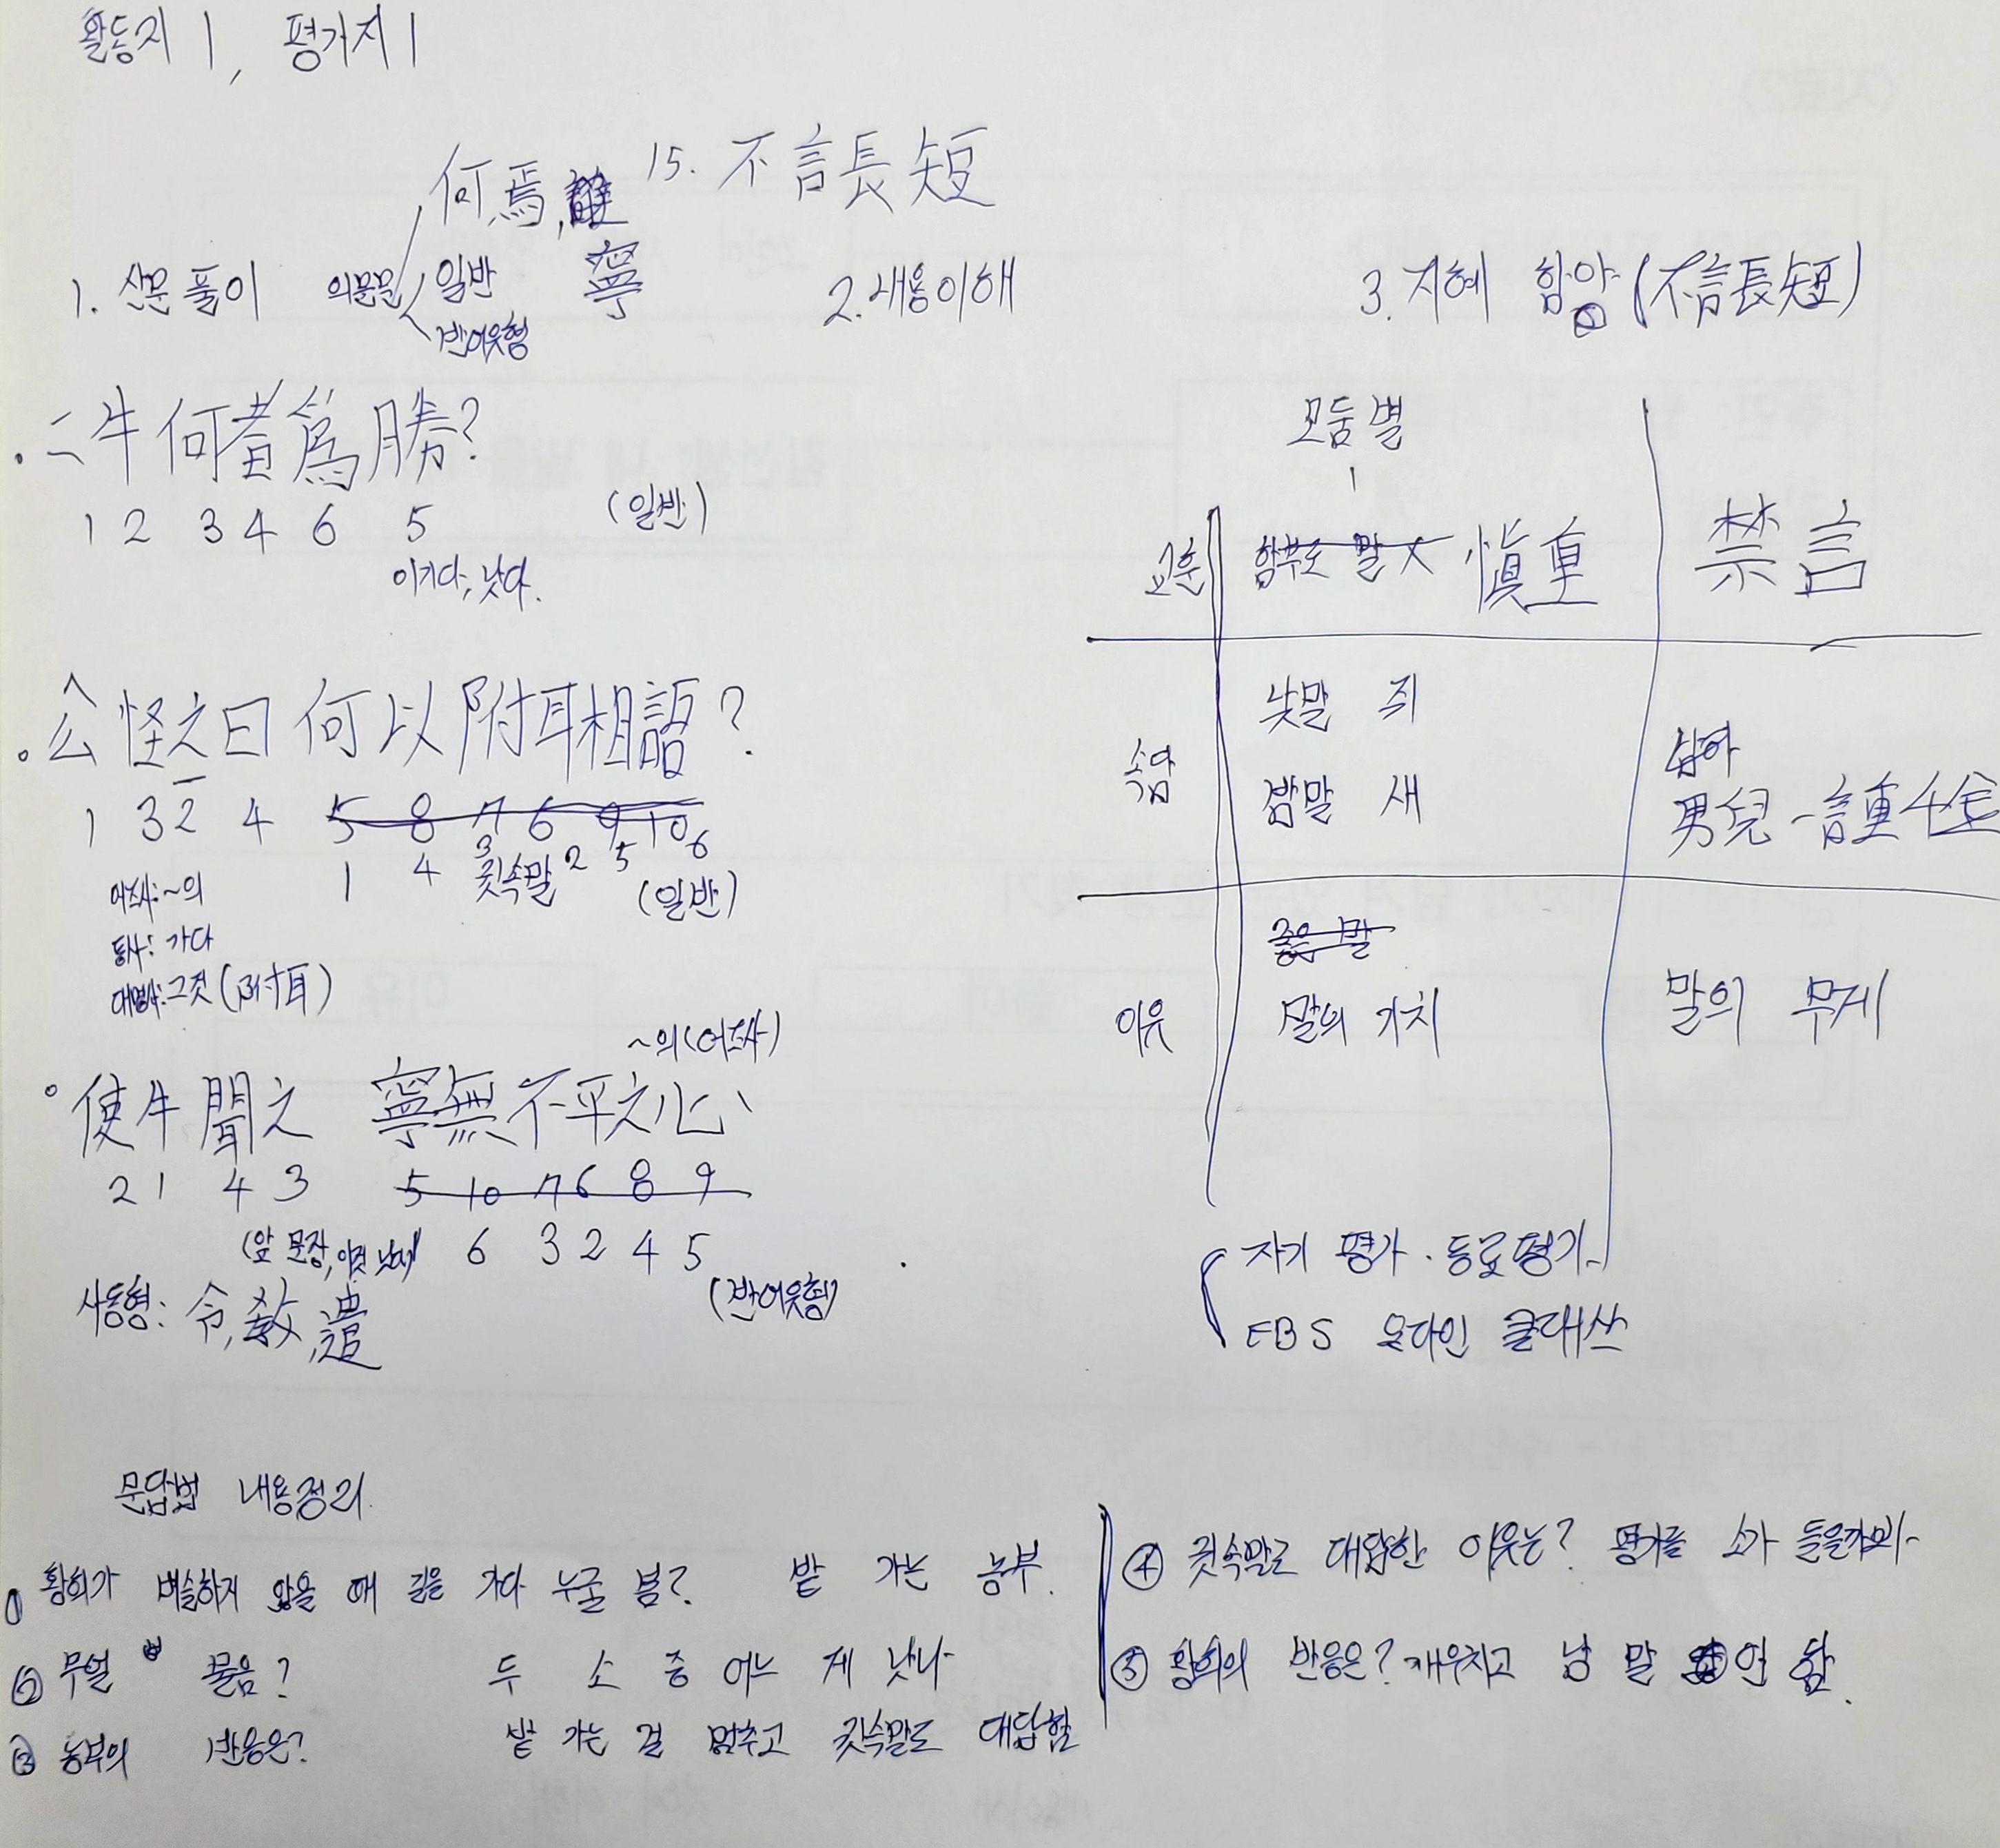 활동지 1, 평가지 1
15. 不言長短
何, 焉, 誰
寧
1. 산문 풀이 의문문 일반
반어유형
2. 내용이해
3. 지혜 함양 (不言長短)
二牛何者爲勝?
1 2 3 4 6 5 (일반)
이기다, 낫다.
公怪之曰 何以附耳相語?
1 3 2 4 5 8 7 6 9 10
1 4 3 2 5 6
귓속말 (일반)
어조사: ~의
동사: 가다
대명사: 그것 (附耳)
~의 (어조사)
使牛聞之 寧無不平之心
2 1 4 3 5 10 7 6 8 9
(앞 문장, 6 3 2 4 5
(반어유형)
사동형: 令, 敎, 遣
모둠별
교훈 함부로 말 X 愼重 禁言
속담 낮말 쥐
밤말 새
남아
男兒一言重千金
이유 좋은 말
말의 가치 말의 무게
자기 평가 · 동료평가
EBS 온라인 클래스
문답법 내용정리
① 황희가 벼슬하지 않을 때 길을 가다 누굴 봄? 밭 가는 농부.
② 무얼 물음? 두 소 중 어느 게 낫나
③ 농부의 반응은? 밭 가는 걸 멈추고 귓속말로 대답함
④ 귓속말로 대답한 이유는? 평가를 소가 들을까봐
⑤ 황희의 반응은? 깨우치고 남 말 안 함.